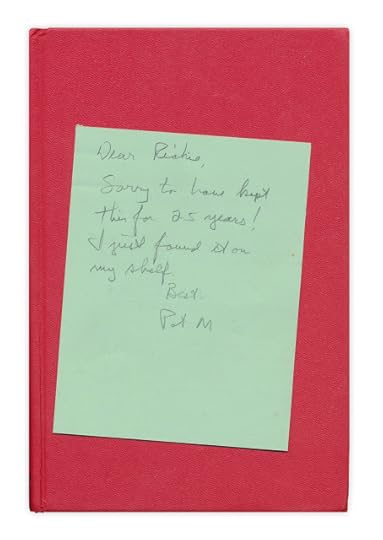 Dear Richie,
Sorry to have kept
this for 25 years!
I just found it on
my shelf.
Best,
Pat M